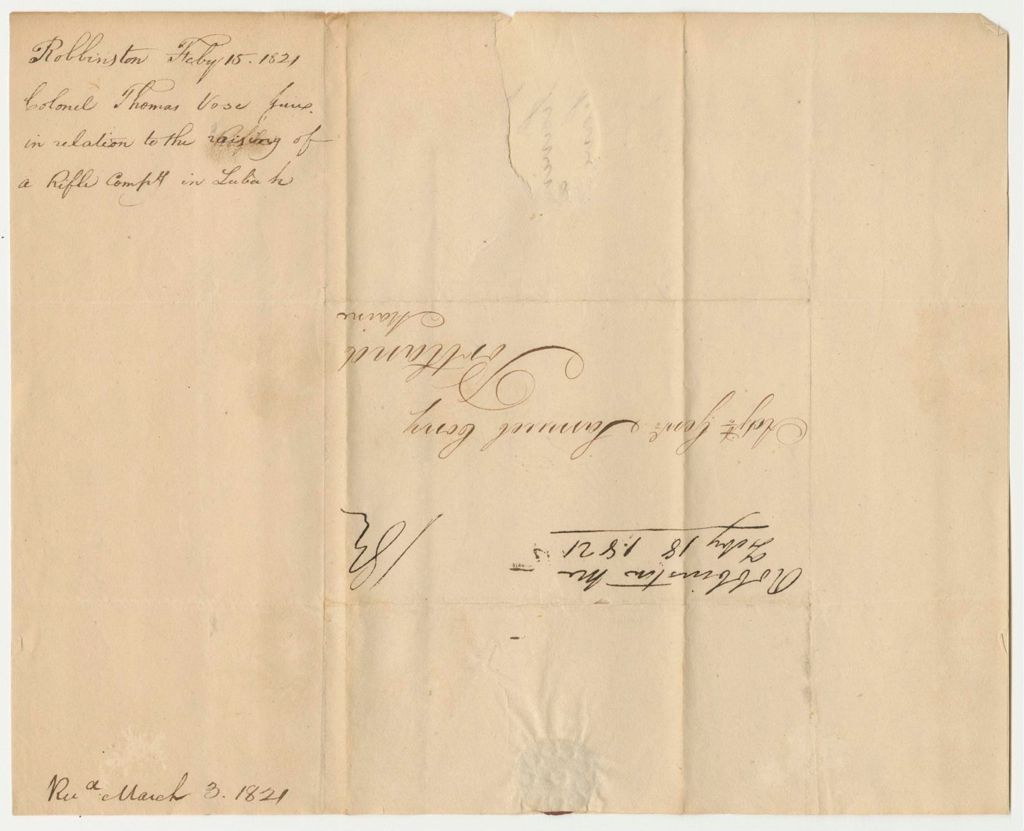 Robbinston Feby 15. 1821
Colonel Thomas Vose Junr.
in relation to the raising of
a Rifle Compy in Lubeck
Maine
Portland
Adjt. Genl. Samuel Cony
Robbinston Me
Feby 18 1821
Recd March 3. 1821